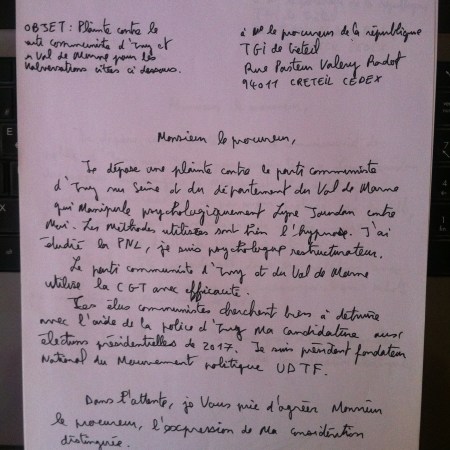 OBJET : Plainte contre le
parti communiste d'Ivry et
du Val de Marne pour les
observations citées ci dessous.
à Mr le procureur de la république
TGI de Créteil
Rue Pasteur Valery Radot
94011 CRETEIL CEDEX
Monsieur le procureur,
Je dépose une plainte contre le parti communiste
d'Ivry sur Seine et du département du Val de Marne
qui Manipule psychologiquement Lyne Jourdan contre
Moi. Les Méthodes utilisées sont bien l'hypnose. J'ai
étudié la PNL, je suis psychologue restructurateur.
Le parti communiste d'Ivry et du Val de Marne
utilise la CGT avec efficacité.
Les élus communistes cherchent bien à détruire
avec l'aide de la police d'Ivry Ma candidature aux
élections présidentielles de 2017. Je suis président fondateur
National du Mouvement politique UDTF.
Dans l'attente, je Vous prie d'agréer Monsieur
le procureur, l'expression de Ma considération
distinguée.